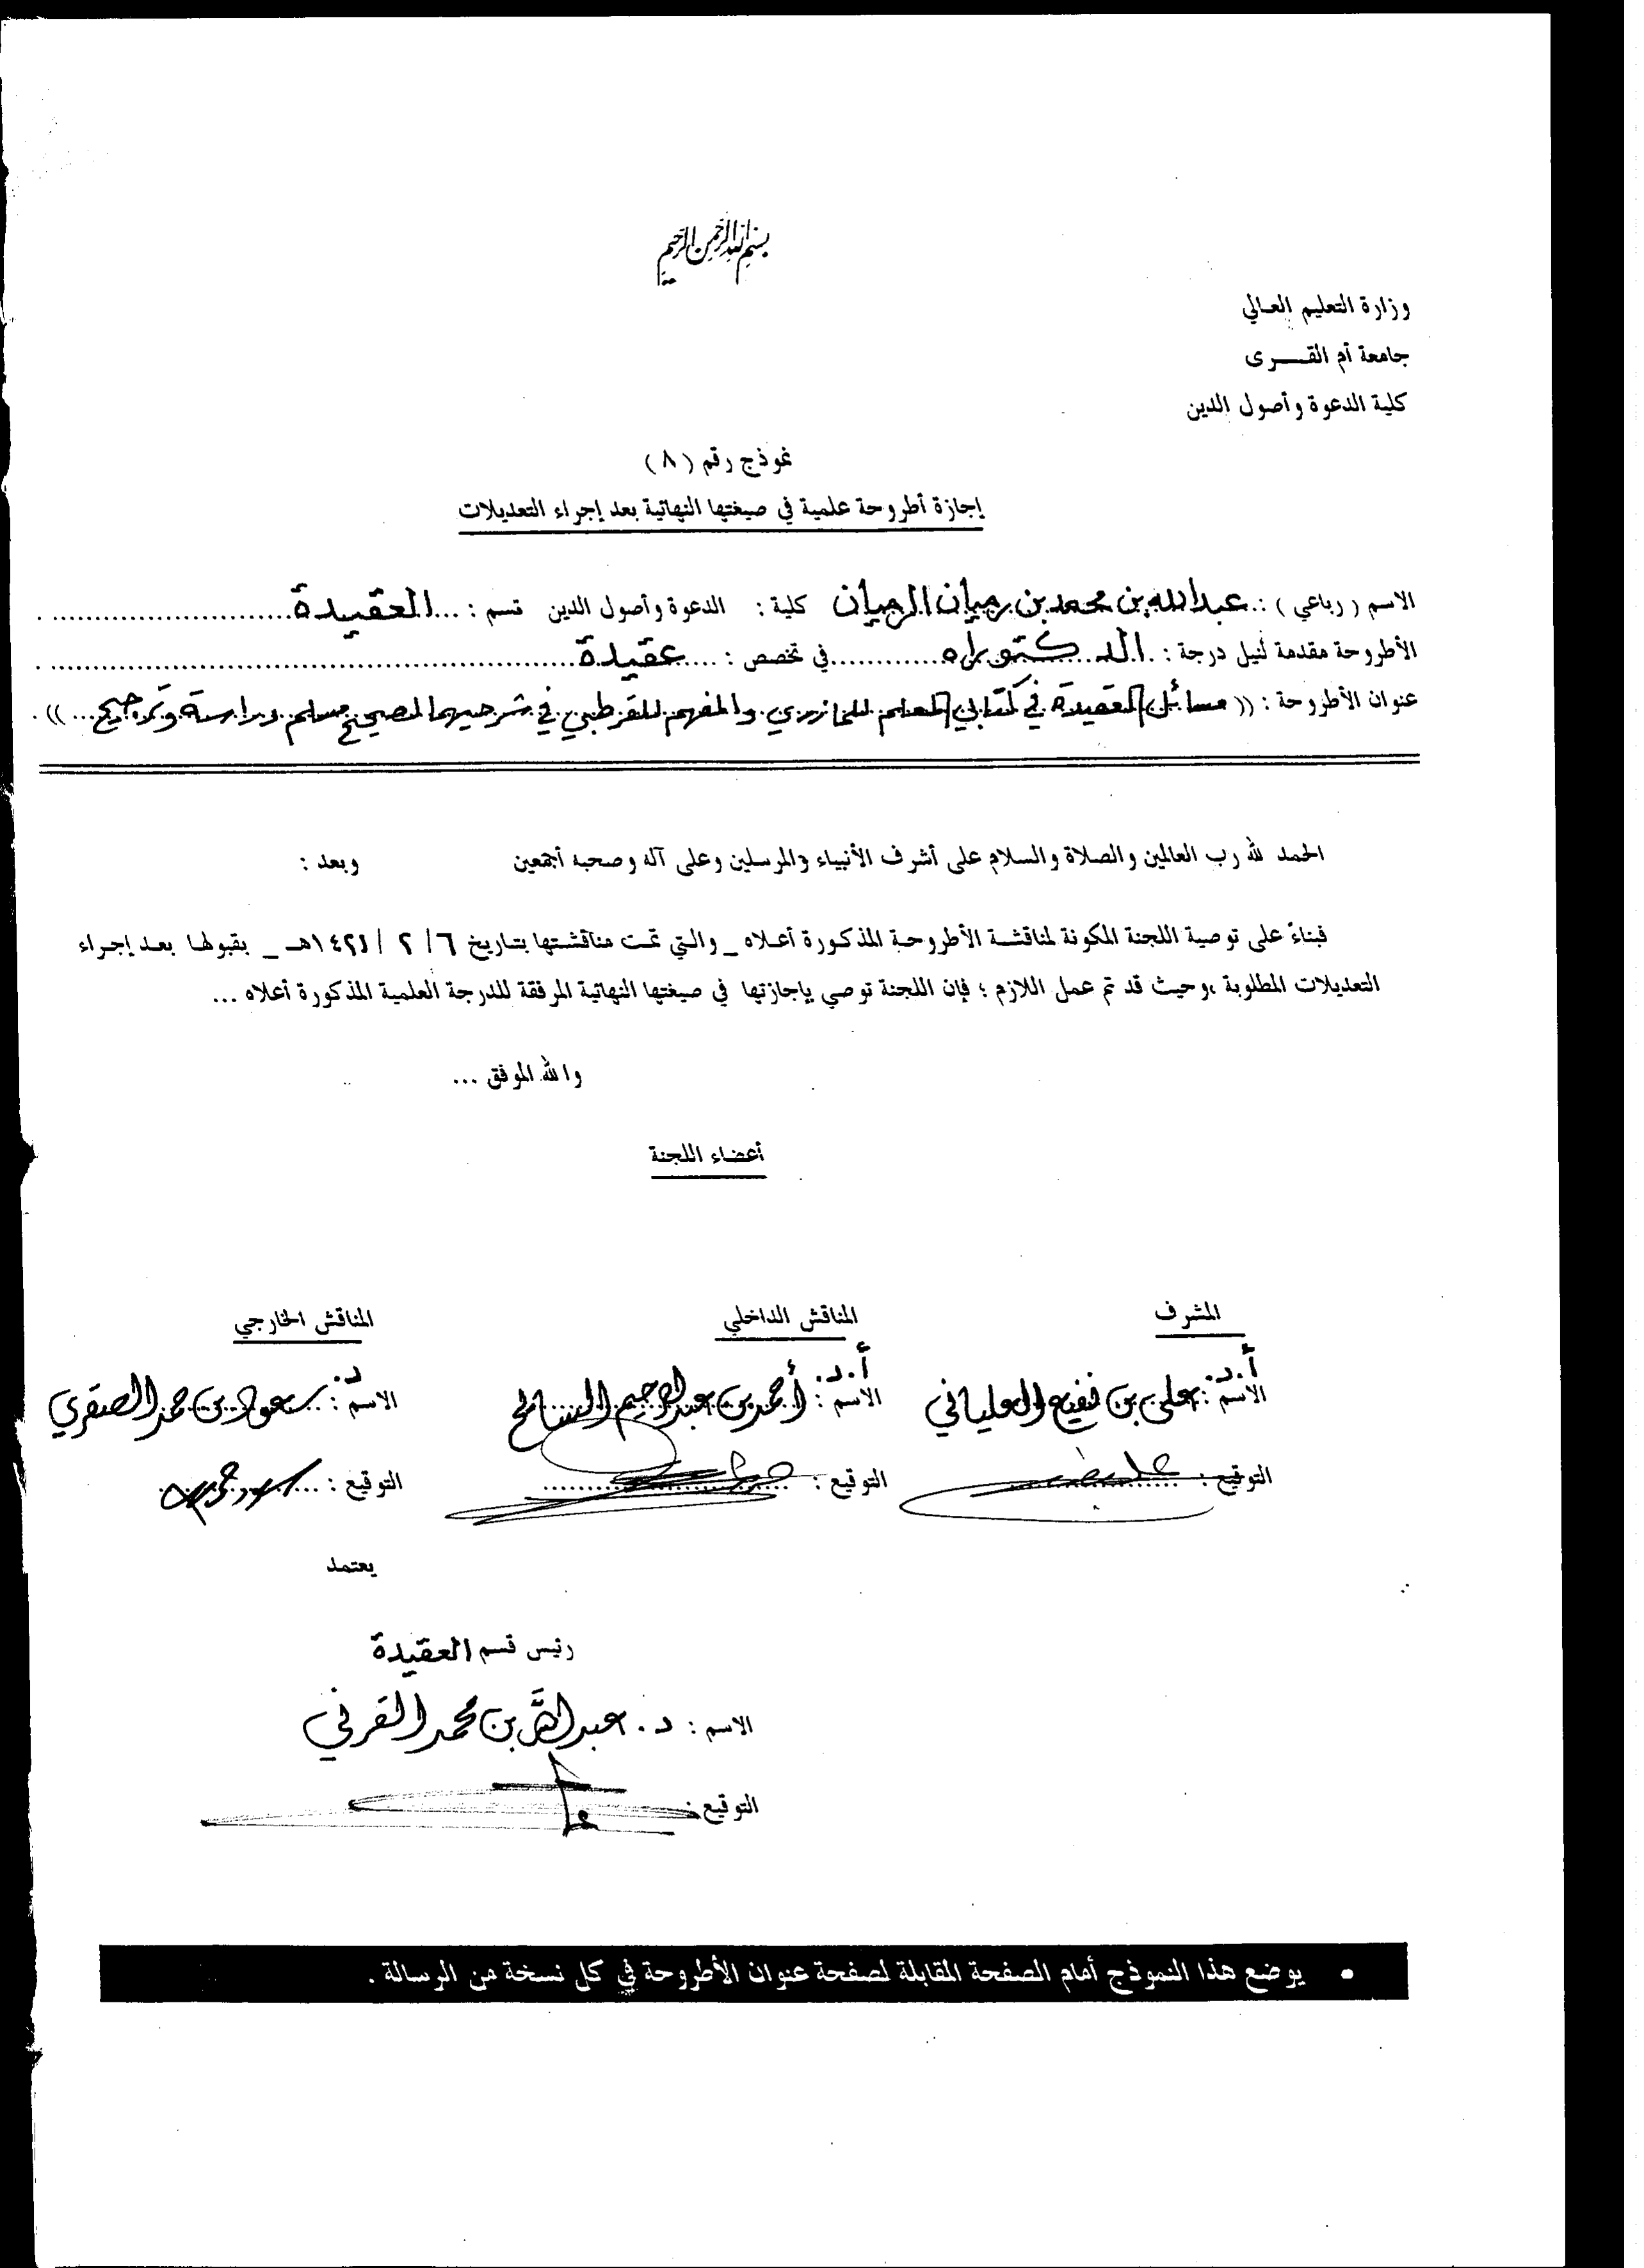 بسم الله الرحمن الرحيم
وزارة التعليم العالي
جامعة أم القـــرى
كلية الدعوة وأصول الدين
نموذج رقم ( ٨ )
إجازة أطروحة علمية في صيغتها النهائية بعد إجراء التعديلات
الاسم ( رباعي ) : عبدالله بن محمد بن رميان الرميان كلية : الدعوة وأصول الدين قسم : ... العقيدة
الأطروحة مقدمة لنيل درجة : .. الدكتوراه ............ في تخصص : .... عقيدة
عنوان الأطروحة : (( مسائل العقيدة في كتابي المعلم للمازري والمفهم للقرطبي في شرحيهما لصحيح مسلم دراسة وترجيح ... )) .
الحمد لله رب العالمين والصلاة والسلام على أشرف الأنبياء والمرسلين وعلى آله وصحبه أجمعين وبعد :
فبناءً على توصية اللجنة المكونة لمناقشة الأطروحة المذكورة أعلاه _ والتي تمت مناقشتها بتاريخ ٦ / ٢ / ١٤٢١هـ _ بقبولها بعد إجراء
التعديلات المطلوبة ،وحيث قد تم عمل اللازم ؛ فإن اللجنة توصي بإجازتها في صيغتها النهائية المرفقة للدرجة العلمية المذكورة أعلاه ...
والله الموفق ...
أعضاء اللجنة
المشرف المناقش الداخلي المناقش الخارجي
الاسم : أ.د. علي بن نفيع العلياني الاسم : أ.د. أحمد بن عبدالرحيم السايح الاسم : د. سعود بن حمد الصقري
التوقيع : التوقيع : التوقيع :
يعتمد
رئيس قسم العقيدة
الاسم : د. عبدالله بن محمد القرني
التوقيع :
• يوضع هذا النموذج أمام الصفحة المقابلة لصفحة عنوان الأطروحة في كل نسخة من الرسالة .